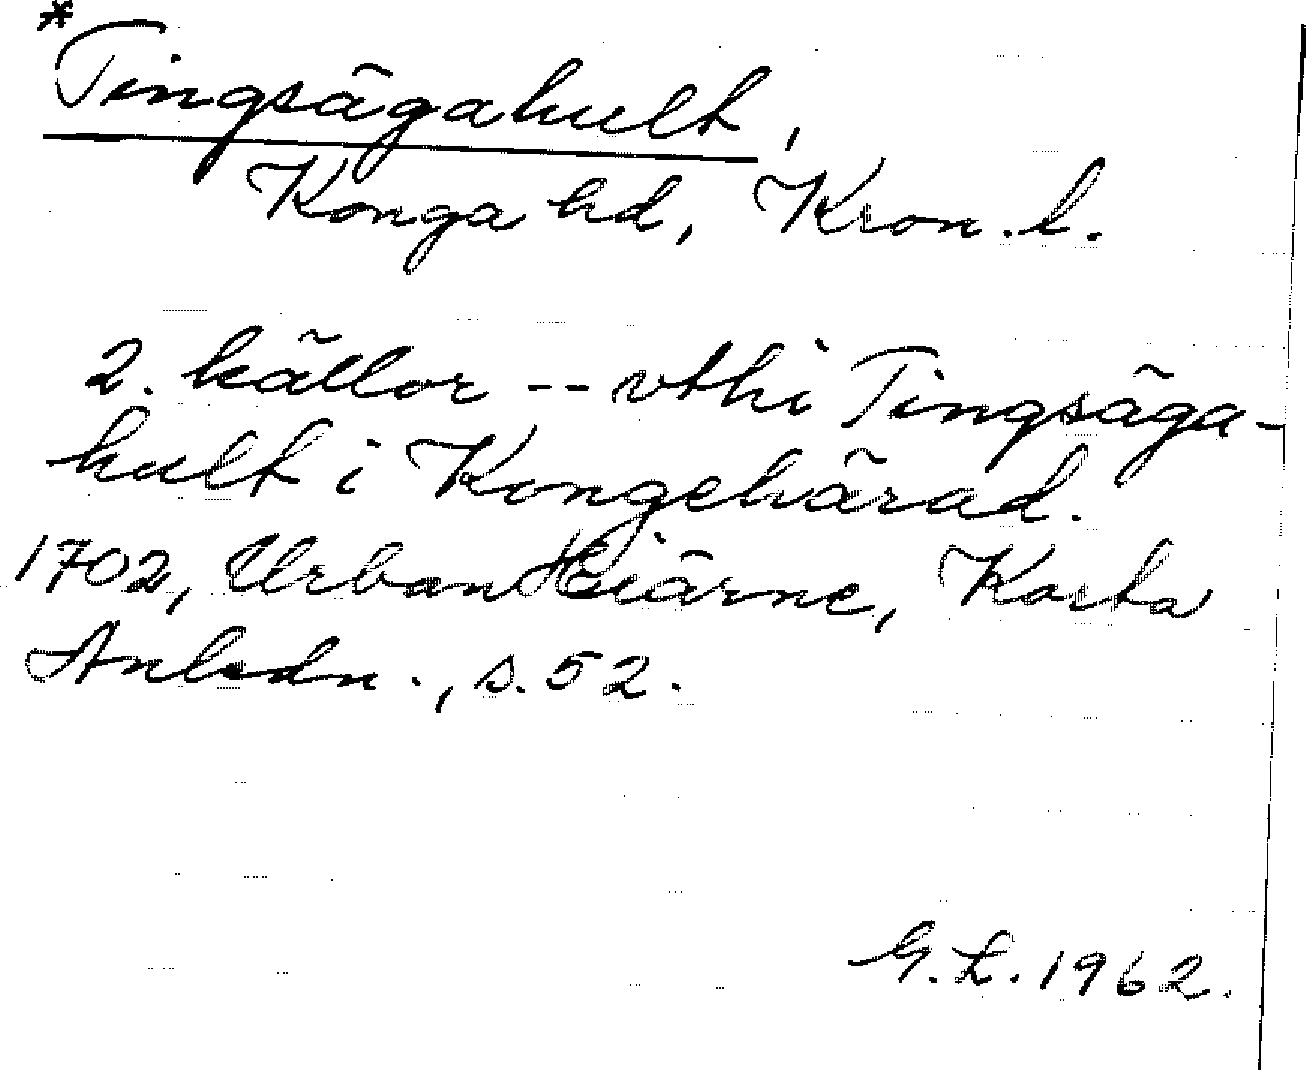 *
Tingsägahult,
Konga hd, Kron. l.
2. källor -- vthi Tingsäga-
hult i Kongehärad.
1702, Urban Hiärne, Korta
Anledn., s. 52.
G. L. 1962.